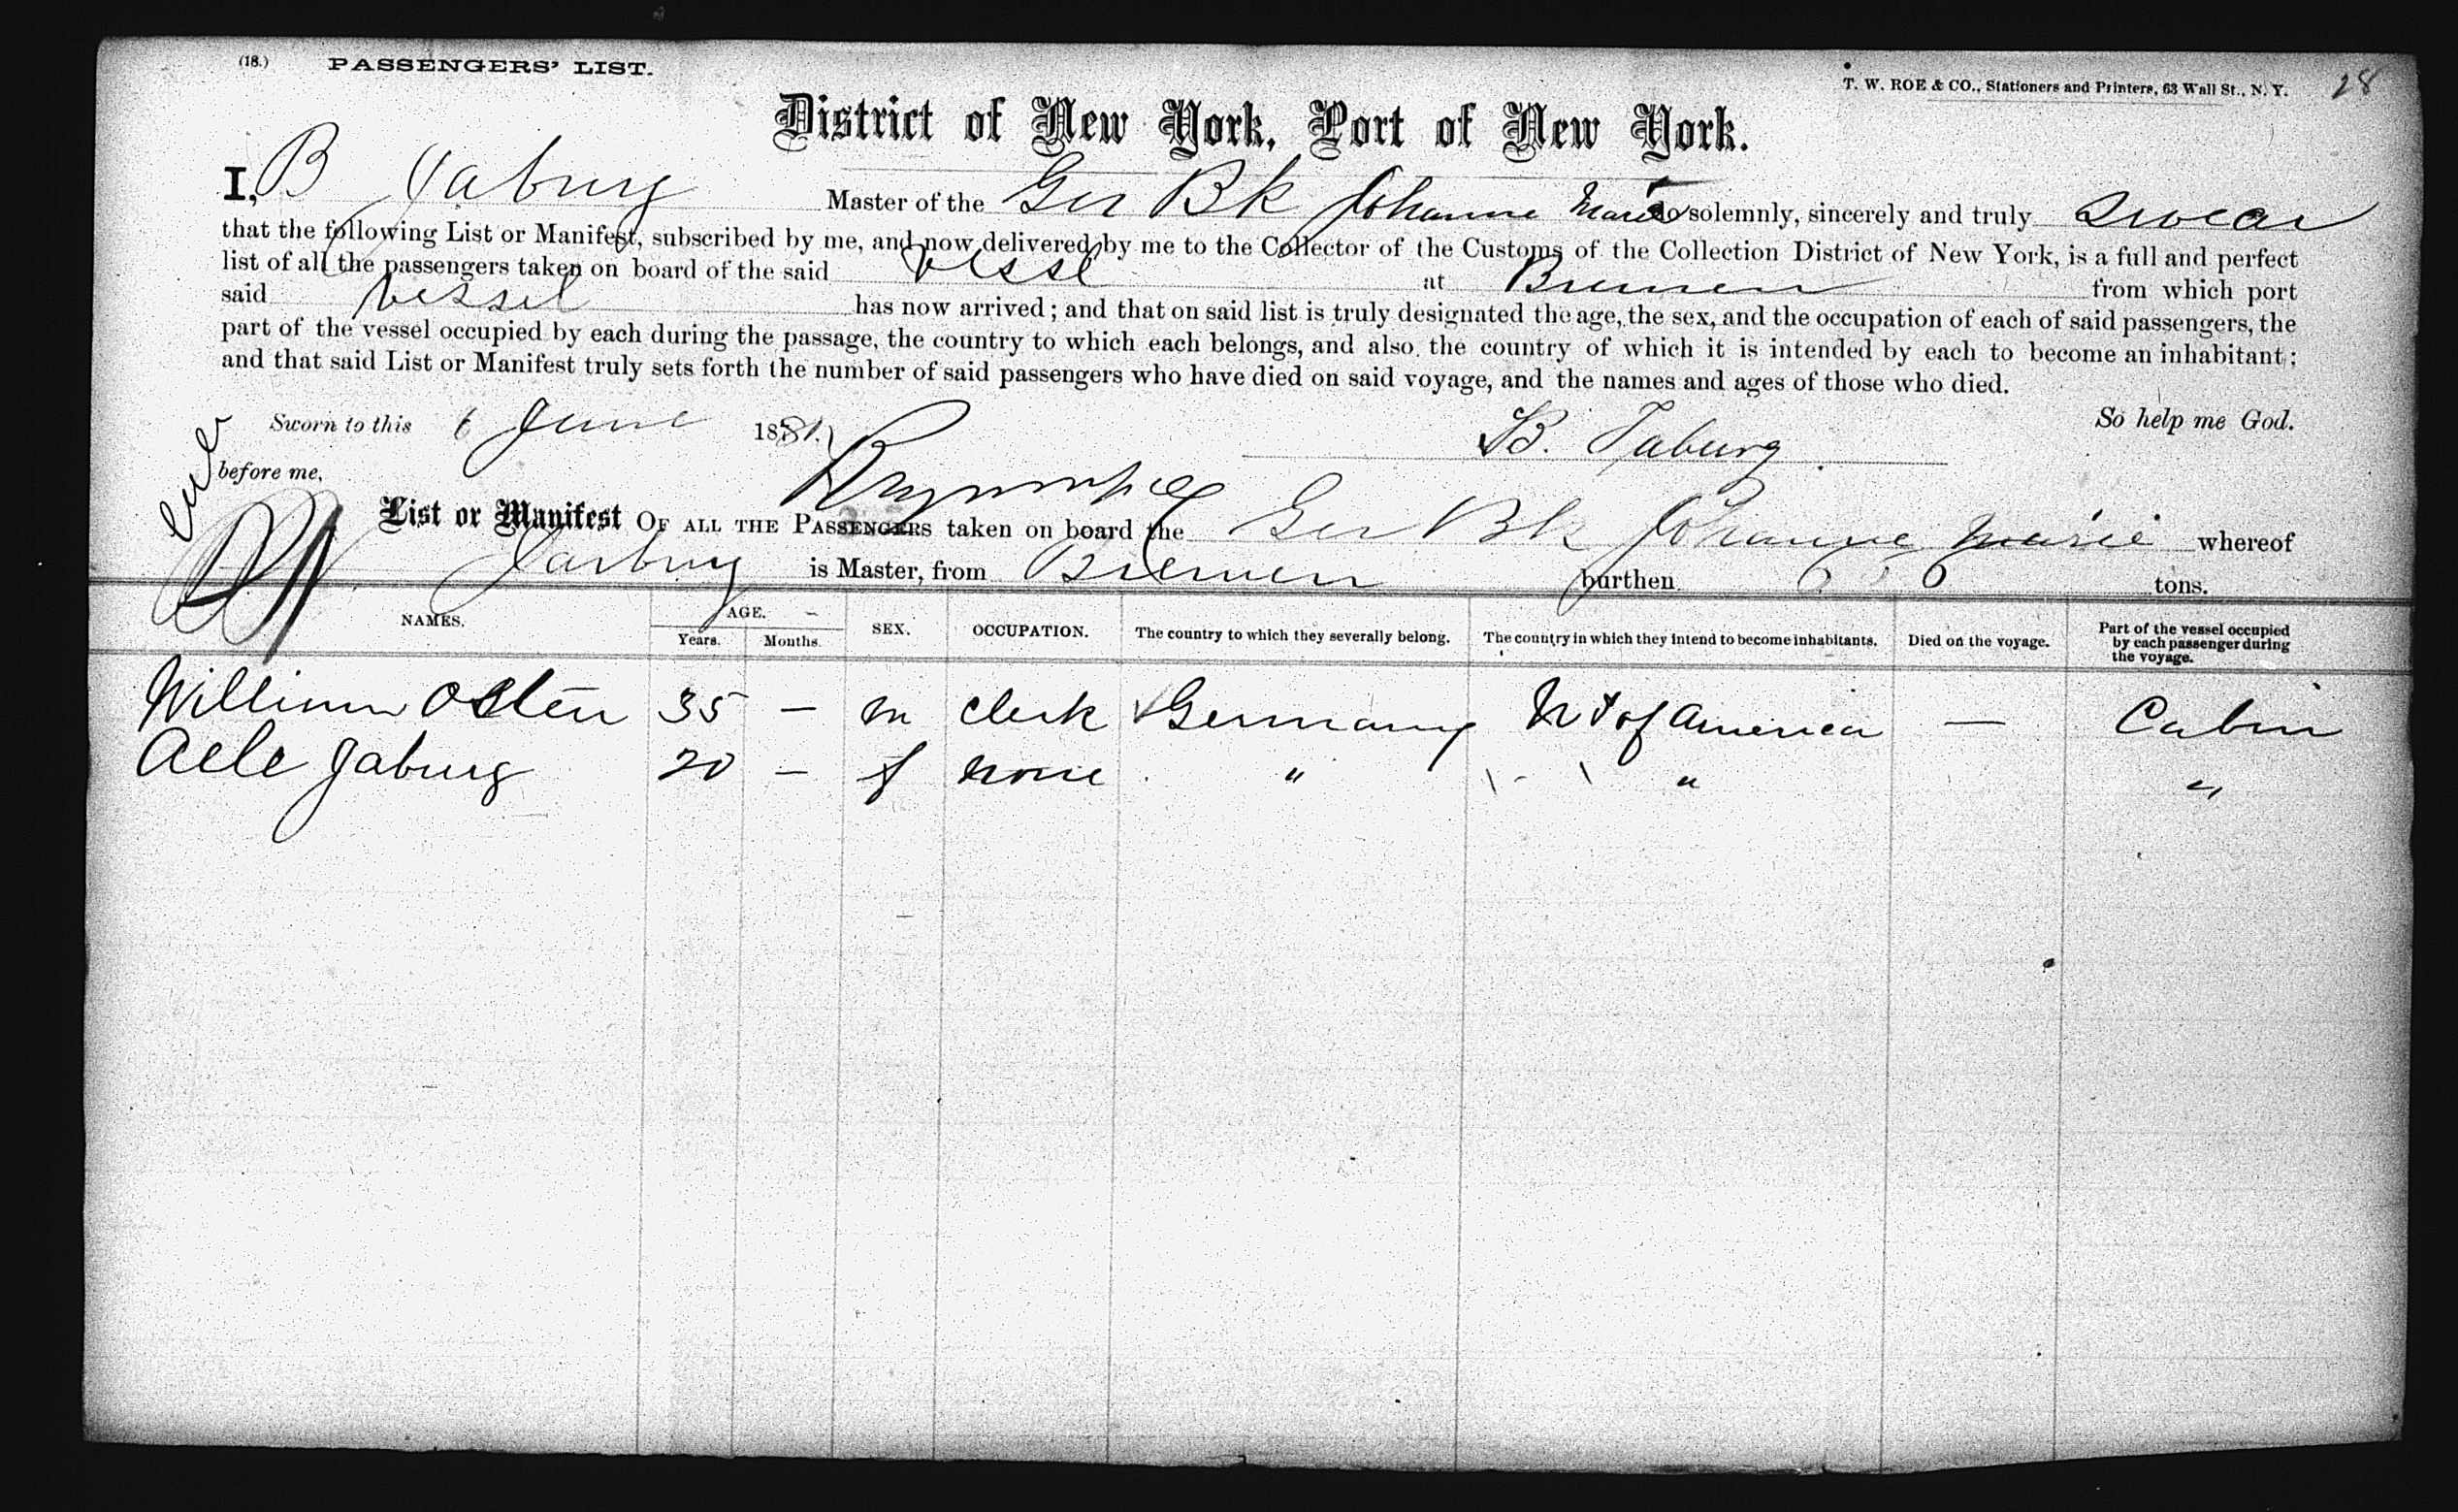 (18.) PASSENGERS' LIST.
T. W. ROE & CO., Stationers and Printers, 63 Wall St., N. Y. 28
District of New York, Port of New York.
I, B Jaburg Master of the Ger Bk Johanne Marie do solemnly, sincerely and truly swear
that the following List or Manifest, subscribed by me, and now delivered by me to the Collector of the Customs of the Collection District of New York, is a full and perfect
list of all the passengers taken on board of the said vessl at Bremen from which port
said vessel has now arrived; and that on said list is truly designated the age, the sex, and the occupation of each of said passengers, the
part of the vessel occupied by each during the passage, the country to which each belongs, and also the country of which it is intended by each to become an inhabitant;
and that said List or Manifest truly sets forth the number of said passengers who have died on said voyage, and the names and ages of those who died.
Sworn to this 6 June 1881. So help me God.
B. Jaburg
before me,
List or Manifest OF ALL THE PASSENGERS taken on board the Ger Bk Johanne Marie whereof
Jarburg is Master, from Bremen burthen tons.
NAMES. AGE. Years. Months. SEX. OCCUPATION. The country to which they severally belong. The country in which they intend to become inhabitants. Died on the voyage. Part of the vessel occupied by each passenger during the voyage.
William Osten 35 — m clerk Germany of America — Cabin
Aele Jaburg 20 — f none " " "